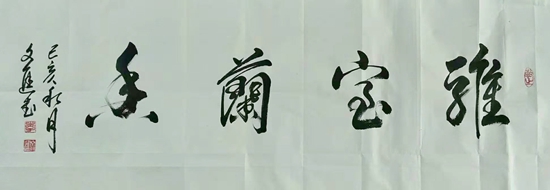 雅室蘭香
己亥秋月
文進書